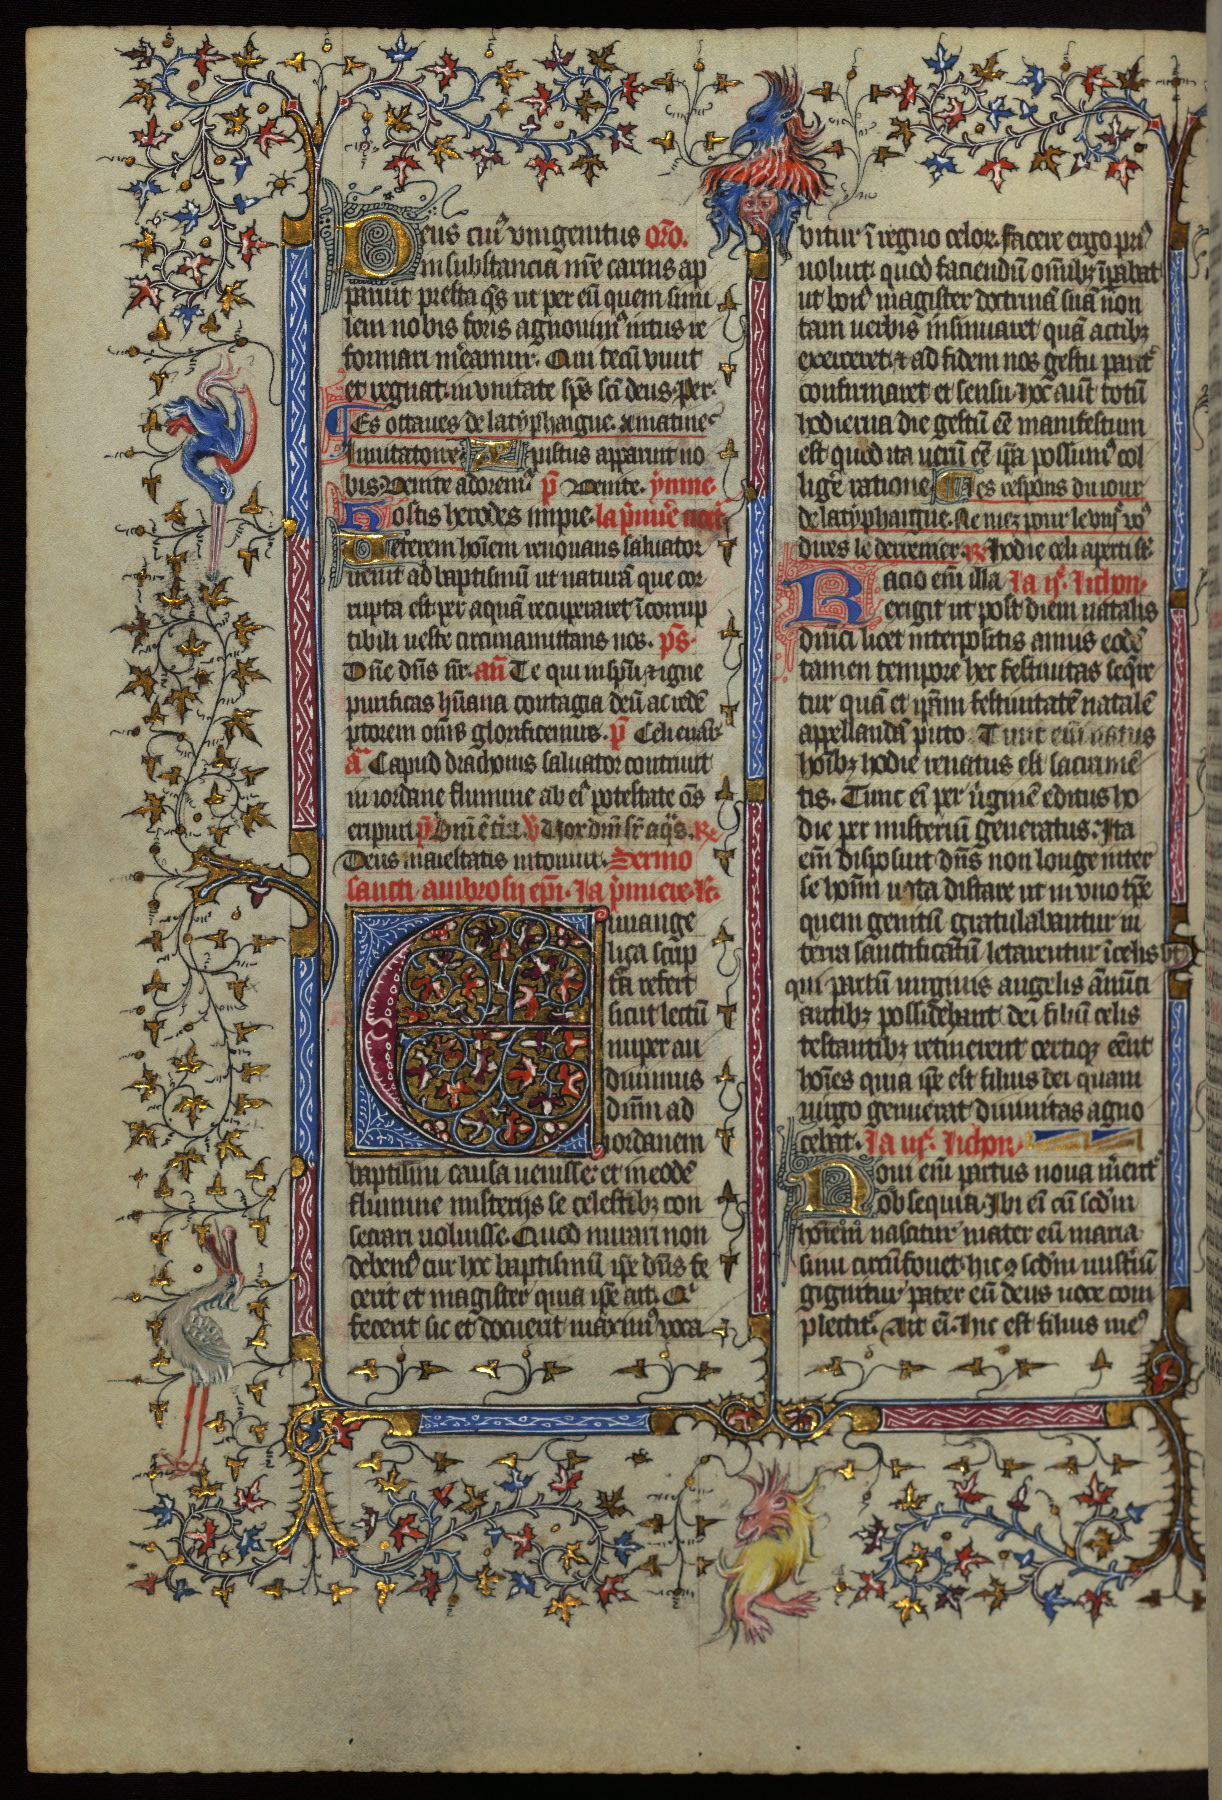 Deus cuiꝰ vnigenitus oro.
in substancia nr̄e carnis ap
paruit presta q̄s ut per eū quem simi
lem nobis foris agnouimꝰ intus re
formari m̄eamur. Qui tecū viuit
et regnat in vnitate sp̄s sc̄i deus. Per.
Les octaues de latyphaigne. A matines
Inuitatoire Xpistus apparuit no
bis. Venite adoremꝰ p̄ Venite. ẏmne.
Hostis herodes impie. la p̄mie noct
Veterem hoīem renouans saluator
uenit ad baptismū ut naturā que cor
rupta est per aquā recuperaret ī corrup
tibili ueste circumamittans nos. p̄s.
Dn̄e dn̄s nr̄. an̄ Te qui in sp̄u ⁊ igne
purificas hūana contagia deū ac rede
ptorem om̄s glorificemus. p̄ Celi enar
a Capud drachonis saluator contriuit
in iordane flumine ab eiꝰ potestate om̄s
eripuit p̄ Dn̄i ē t̄ra. v̄ Vox dn̄i sr̄ aq̄s. R
Deus maiestatis intonuit. Sermo
sancti ambrosij ep̄i. La p̄miere. R.
Euuange
lica scrip
t̄a refert
sicut lectū
nuper au
diuimus
dn̄m ad
iordanem
baptismi causa uenisse: et in eodē
flumine misterijs se celestibꝫ con
secrari uoluisse. Quod mirari non
debemꝰ cur hoc baptismū ip̄e dn̄s fe
cerit et magister quia ip̄e ait. Qͥ
fecerit sic et docuerit maximꝰ voca
bitur ī regno celorꝫ. facere ergo priꝰ
uoluit quod faciendū om̄ibꝫ īpabat
ut bonꝰ magister doctrinā suā non
tam uerbis insinuaret quā actibꝫ
exerceret. ⁊ ad fidem nos gestu parit͛
confirmaret et sensu. hoc aut̄ totū
hodierna die gestū ēē manifestum
est quod ita uerū ēē ip̄a possumꝰ col
liḡe ratione Les respons du iour
de latyphaigne. Ne mez pour le vnsͤ voꝰ
dires le derrenier. R Hodie celi aperti st̄.
Racio em̄ illa La ij͛. lichon.
exigit ut post diem natalis
dn̄ici licet interpositis annis eodē
tamen tempore hec festiuitas seq̄re
tur quā et ip̄am festiuitatē natale
appellandā puto. Tunc em̄ natus
hoībꝫ hodie renatus est sacramē
tis. Tunc ei per ūginē editus ho
die per misteriū generatus. Ita
em̄ disposuit dn̄s non longe inter
se hoīm uota distare ut in vno tp̄e
quem genitū gratulabantur in
terra sanctificatū letarentur ī celis vt
qui partū uirginis angelis ānūti
antibꝫ possidebant dei filiū celis
testantibꝫ retinerent certiqꝫ cēnt
hoīes quia ip̄e est filius dei quam
uirgo genuerat diuinitas agno
cebat. La iij͛. lichon.
Noui em̄ partus noua m̄ent͛
obsequia. Ibi ei cū sc̄dm
hoīem nascitur mater eū maria
sinu circūfouet. hic ꝙ sc̄dm misteriū
gignitur pater eū deus uoce com
plectit͛. Ait ei. hic est filius meꝰ